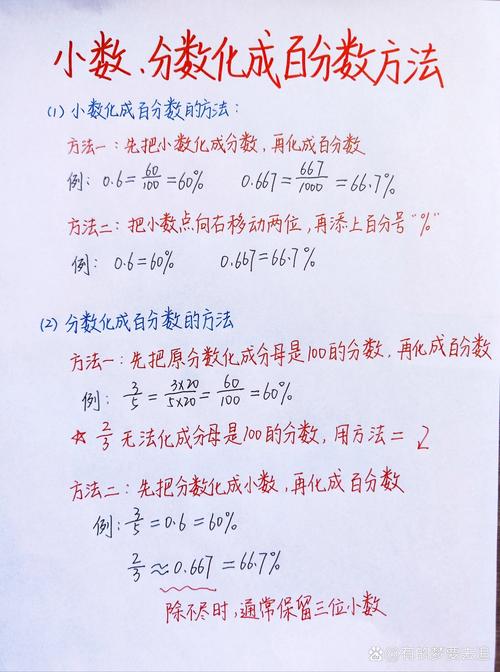 小数、分数化成百分数方法
(1) 小数化成百分数的方法:
方法一:先把小数化成分数,再化成百分数
例: 0.6=60/100=60% 0.667=667/1000=66.7%
方法二:把小数点向右移动两位,再添上百分号"%"
例: 0.6=60% 0.667=66.7%
(2) 分数化成百分数的方法
方法一:先把原分数化成分母是100的分数,再化成百分数
例: 3/5=3×20/5×20=60/100=60%
☆ 2/3 无法化成分母是100的分数,用方法二
方法二:先把分数化成小数,再化成百分数
例: 3/5=0.6=60%
2/3≈0.667=66.7%
除不尽时,通常保留三位小数
@有的梦要去追